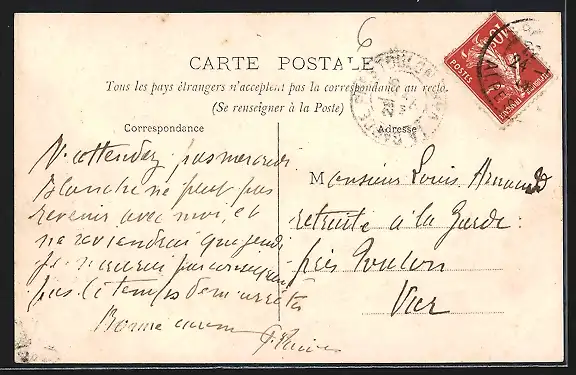 6
CARTE POSTALE
Tous les pays étrangers n'acceptent pas la correspondance au recto.
(Se renseigner à la Poste)
Correspondance
Adresse
POSTES
N'attendez pas mercredi
Blanche ne peut pas
revenir avec moi, et
ne reviendrai que jeudi
je n'aurai par conséquent
pas le temps de m'arrêter
Bonne
Monsieur Louis Arnaud
retraité à la Garde
près Toulon
Var